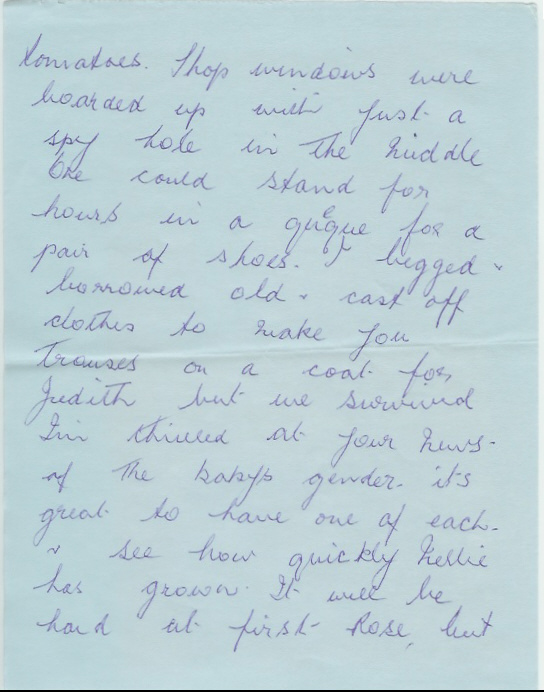 tomatoes. Shop windows were
boarded up with just a
spy hole in the middle
One could stand for
hours in a queque for a
pair of shoes. I begged &
borrowed old & cast off
clothes to make you
trouses or a coat for
Judith but we survived
I'm thrilled at your news -
of the babys gender. it's
great to have one of each.
& see how quickly Nellie
has grown. It will be
hard at first Rose, but